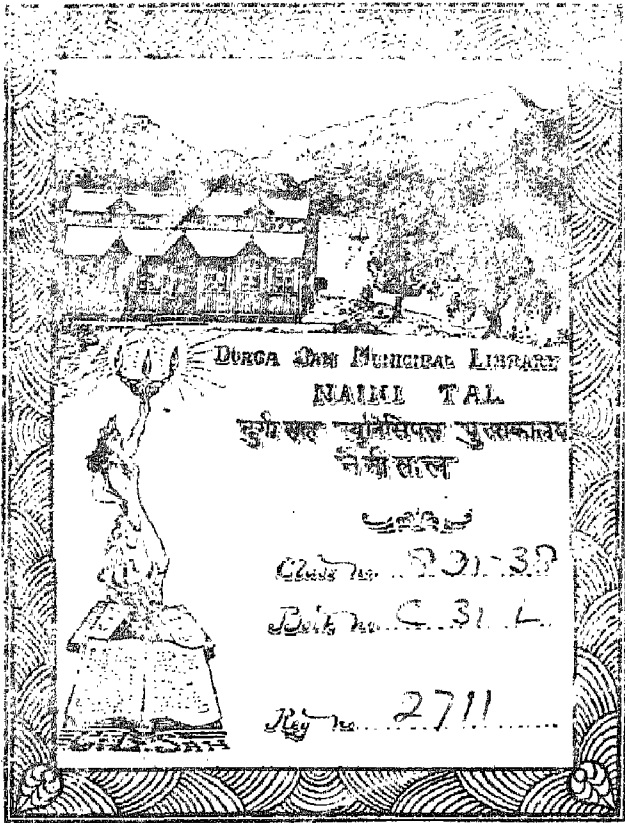 DURGA SAH MUNICIPAL LIBRARY
NAINI TAL
दुर्गा साह म्युनिसिपल पुस्तकालय
नैनीताल
Class no. 891-38
Book no. C 31 L
Reg no. 2711